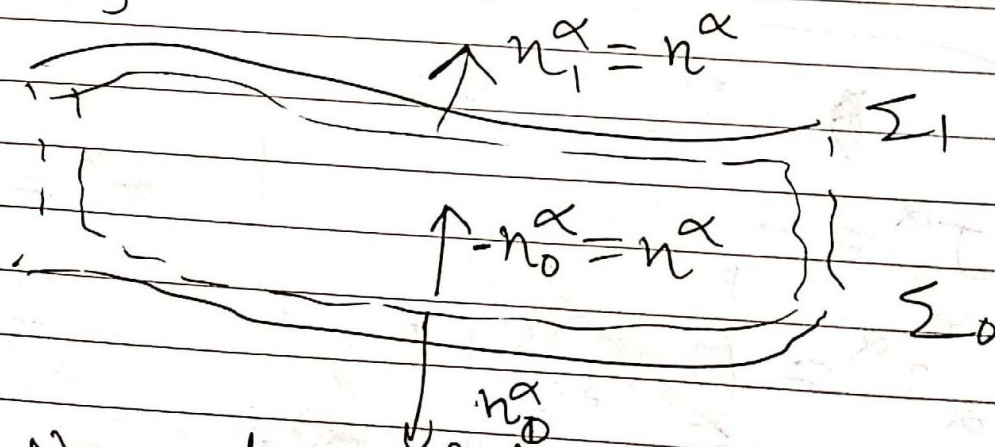 n₁^α = n^α
Σ₁
-n₀^α = n^α
Σ₀
n₀^α